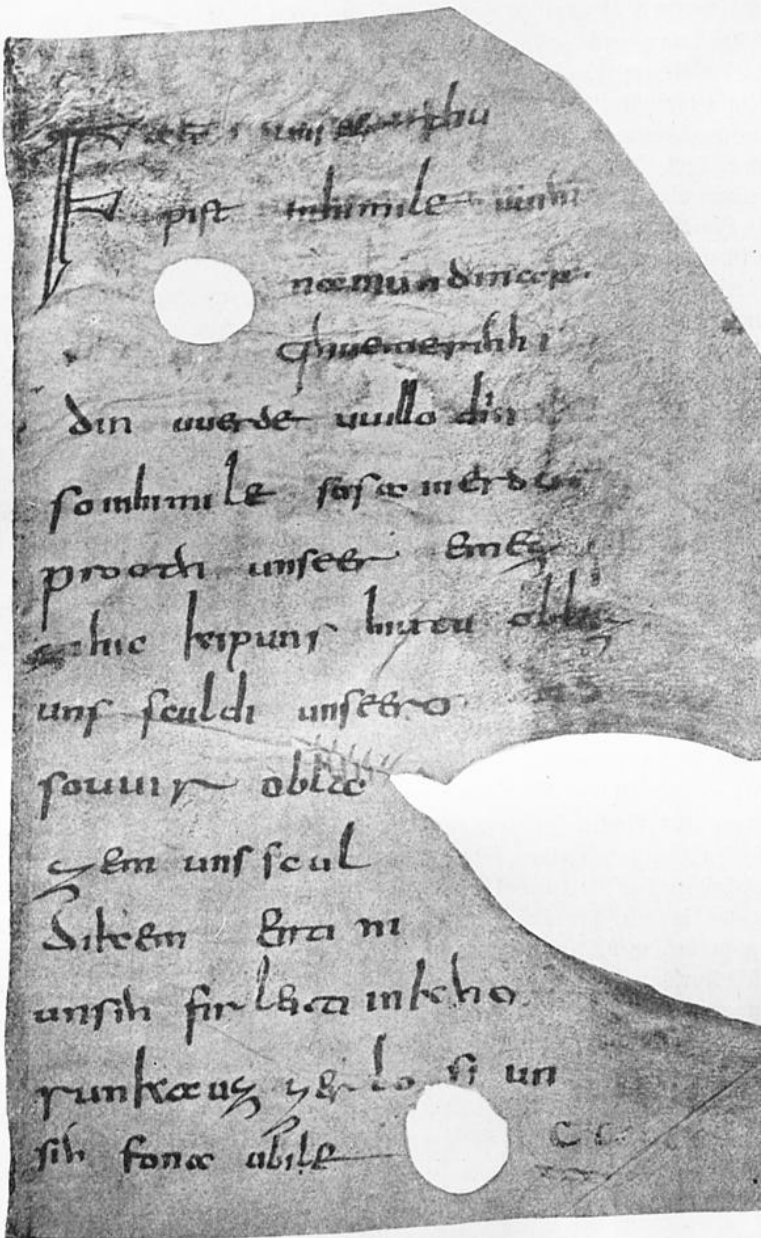 Fater unseer thu
pist inhimile uuihi
namundinan
qhuemerihhi
din uuerde uuillo diin
soinhimile sosa inerdu
prooth unseer emez
zihic kipuns hiutu oblaz
uns sculdi unseero
souuir oblaz
zem uns scul
dikem enti ni
unsih firleiti inkho
runka uz zer lo si un
sih fona ubile